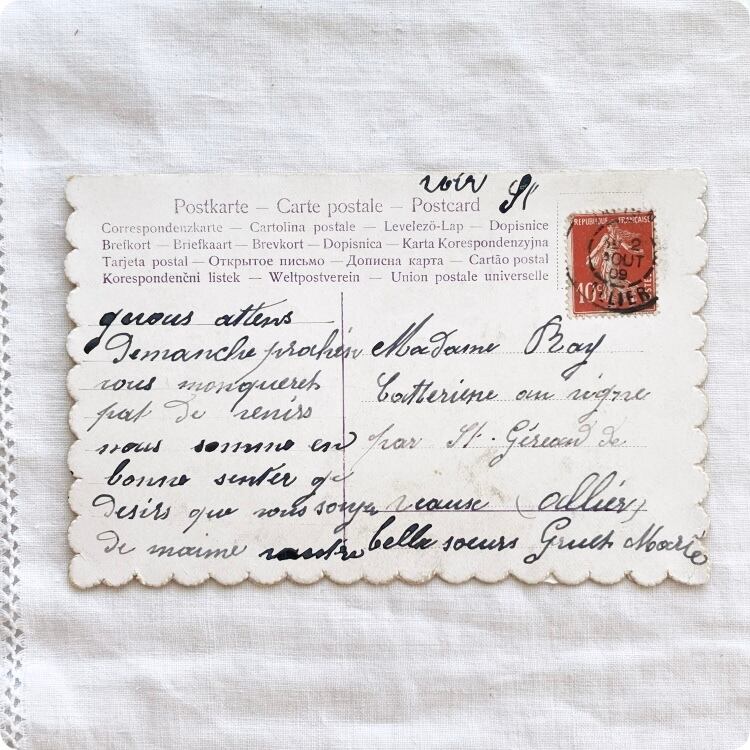 voir St
Postkarte — Carte postale — Postcard
Correspondenzkarte — Cartolina postale — Levelezö-Lap — Dopisnice
Brefkort — Briefkaart — Brevkort — Dopisnica — Karta Korespondenzyjna
Tarjeta postal — Открытое письмо — Дописна карта — Cartão postal
Korespondenčni listek — Weltpostverein — Union postale universelle
REPUBLIQUE FRANÇAISE
2
AOUT
09
10
POSTES
LLIER
gevous attens
Demanche prohein
vous monqueret
pat de venirs
nous somme en
bonne senter ge
desirs que vous soyer
de maime vautre
Madame Ray
Catterine au vigne
par St. Géreand de
veause (Allier)
bella soeurs Gruet Marie